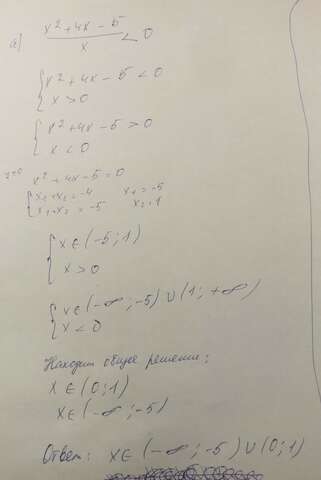 а) x² + 4x − 5 / x < 0
{ x² + 4x − 5 < 0
x > 0
{ x² + 4x − 5 > 0
x < 0
x² + 4x − 5 = 0
{ x₁ + x₂ = −4 x₁ = −5
x₁ * x₂ = −5 x₂ = 1
{ x ∈ (−5; 1)
x > 0
{ x ∈ (−∞; −5) ∪ (1; +∞)
x < 0
Находим общее решение:
x ∈ (0; 1)
x ∈ (−∞; −5)
Ответ: x ∈ (−∞; −5) ∪ (0; 1)